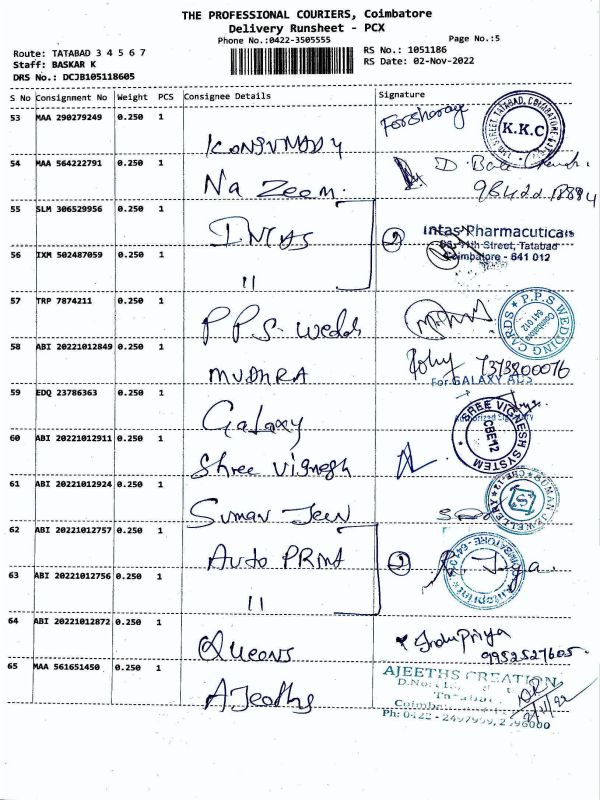 THE PROFESSIONAL COURIERS, Coimbatore
Delivery Runsheet - PCX
Phone No.:0422-3505555
Page No.:5
Route: TATABAD 3 4 5 6 7
Staff: BASKAR K
DRS No.: DCJB105118605
RS No.: 1051186
RS Date: 02-Nov-2022
S No Consignment No Weight PCS Consignee Details Signature
53 MAA 290279249 0.250 1
K.K.C
54 MAA 564222791 0.250 1
Na Zeem.
D. Bala
55 SLM 306529956 0.250 1
INTAS
2
Intas Pharmaceuticals
11th Street, Tatabad
Coimbatore - 641 012
56 IXM 502487059 0.250 1
11
57 TRP 7874211 0.250 1
P.P.S. Wedds
P.P.S. WEDDING CARDS
Coimbatore
641 012
58 ABI 20221012849 0.250 1
MUDHRA
7373800076
For GALAXY ADS
59 EDQ 23786363 0.250 1
Galaxy
60 ABI 20221012911 0.250 1
Shree Vignesh
SREE VIGNESH SYSTEM
CBE-12
61 ABI 20221012924 0.250 1
Suman Jew
SUMAN JEWELLERY
CBE-12
62 ABI 20221012757 0.250 1
Auto PRint
2
63 ABI 20221012756 0.250 1
11
64 ABI 20221012872 0.250 1
Queens
Indu Priya
9952527605.
65 MAA 561651450 0.250 1
Ajeeths
AJEETHS CREATION
2/11/22
Ph: 0422 - 2497999,